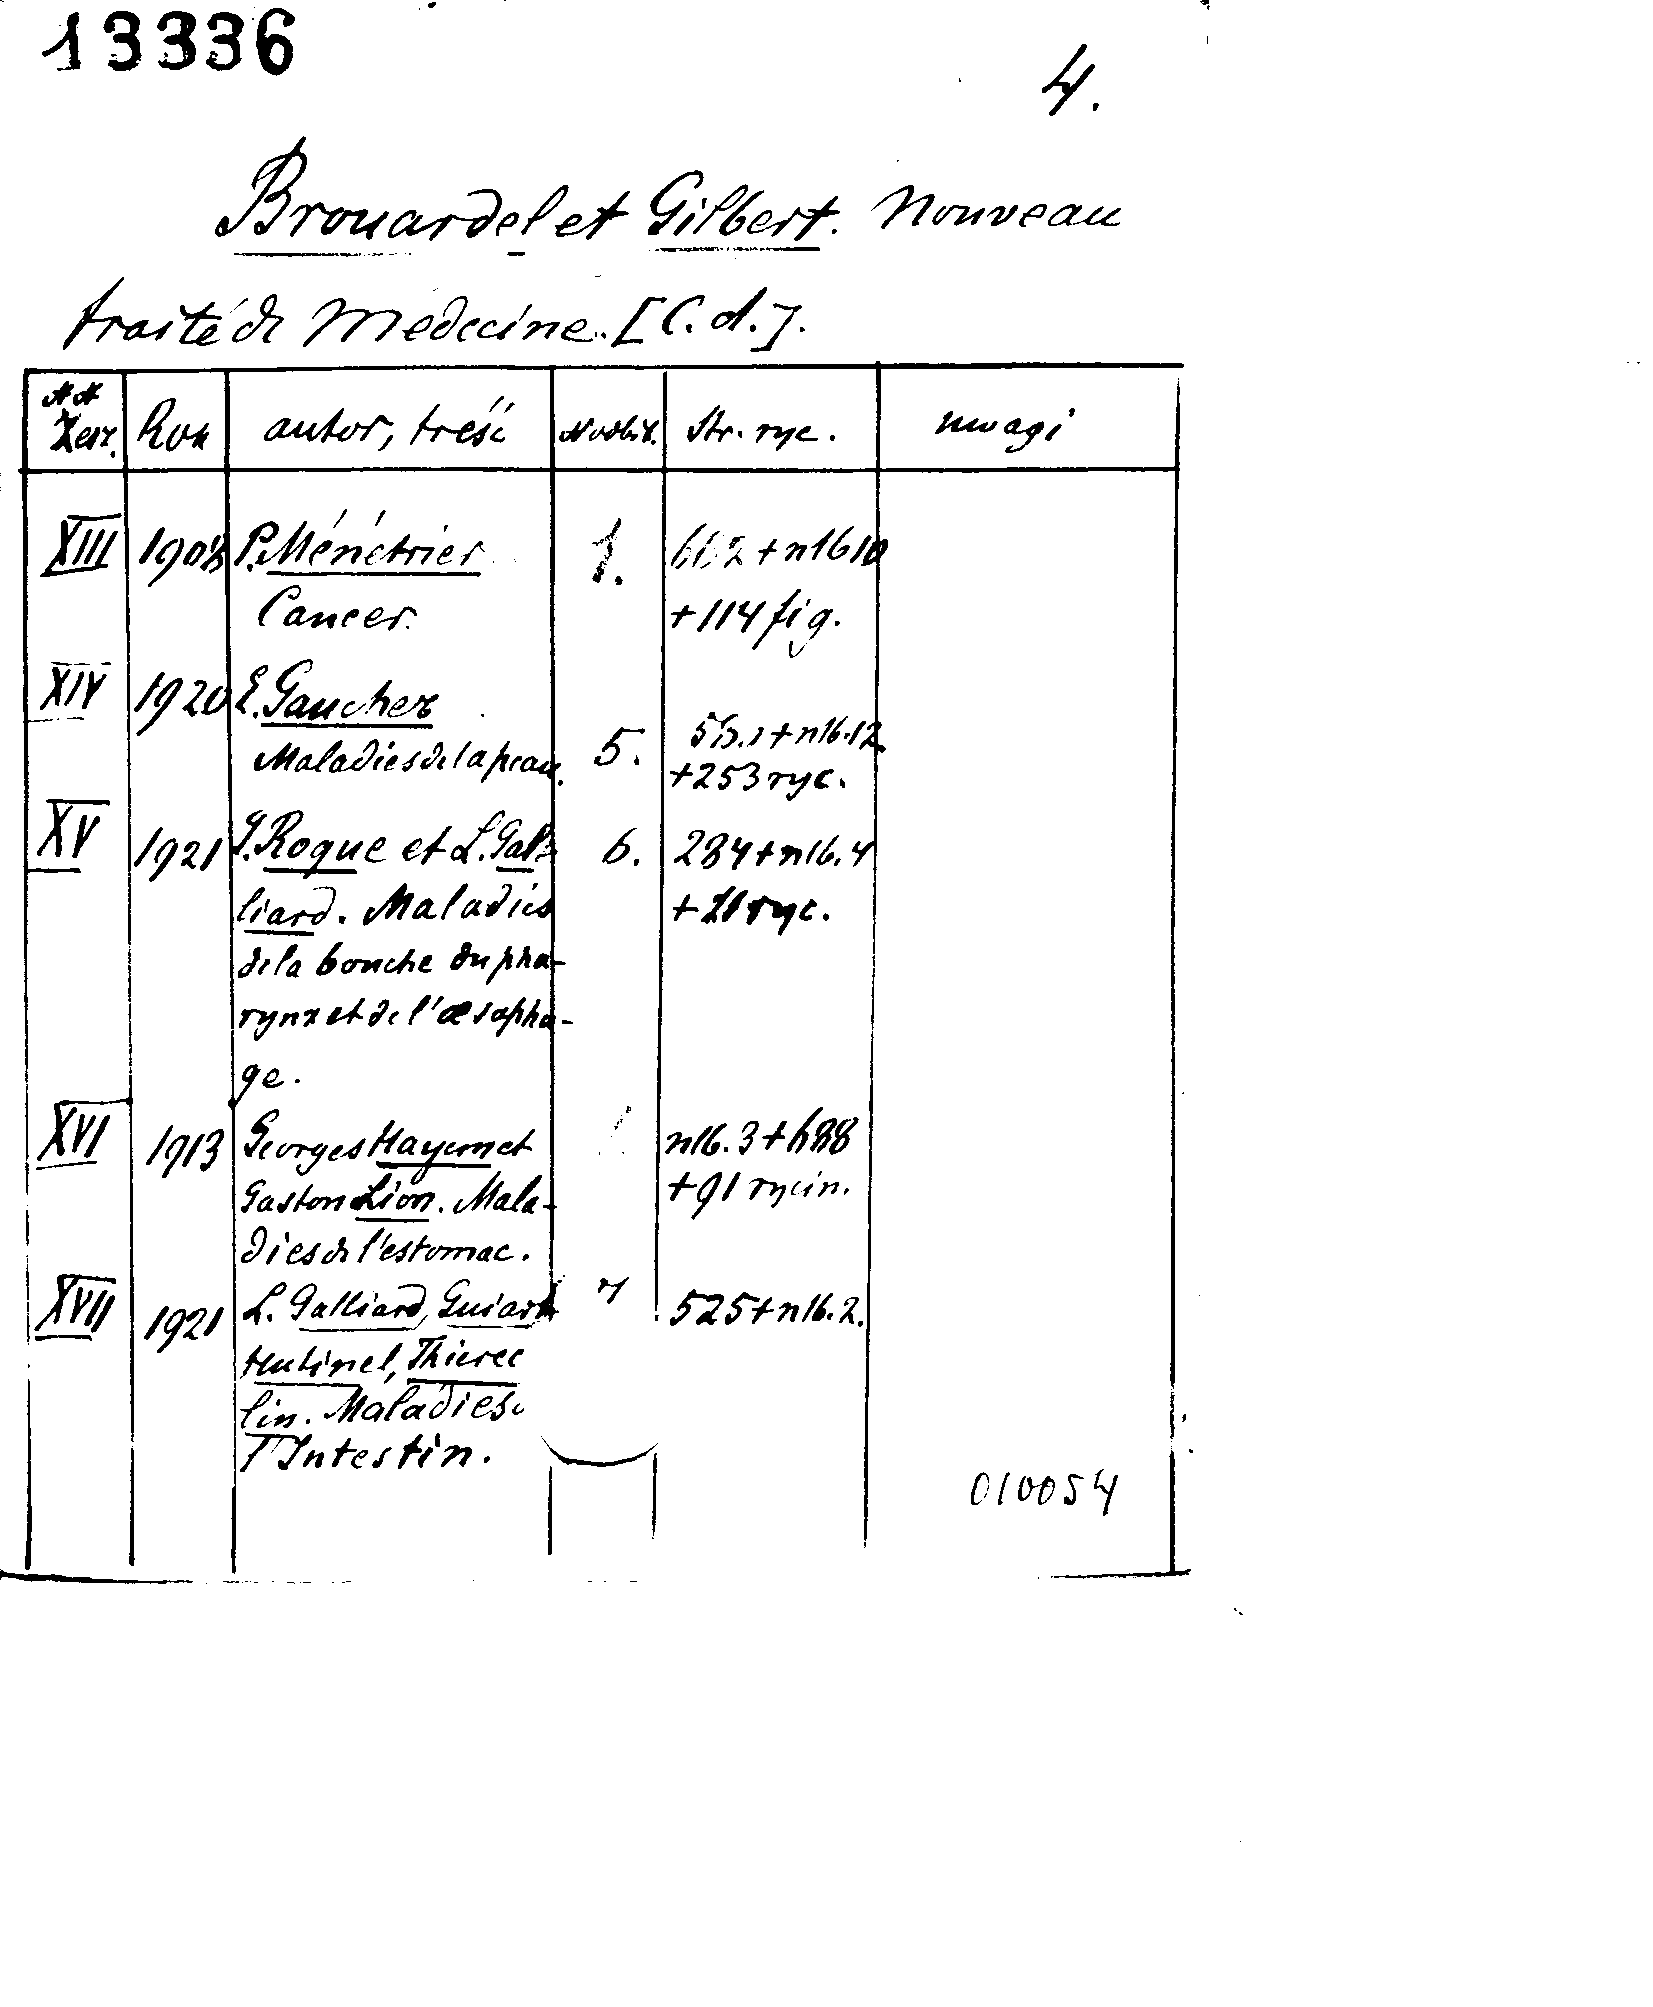 13336
4.
Brouardel et Gilbert. Nouveau
traité de Médecine. [C. d.].
NN Zesz. Rok autor, treść No odbit. Str. ryc. uwagi
XIII 1908 P. Ménétrier 1. 662 + nlb 10
Cancer. + 114 fig.
XIV 1920 E. Gaucher
Maladies de la peau. 5. + nlb. 12
+ 253 ryc.
XV 1921 G. Roque et L. Gal- 6. 284 + nlb. 4
liard. Maladies + ryc.
de la bouche du pha-
rynx et de l'œsopha-
ge.
XVI 1913 Georges Hayem et nlb. 3 +
Gaston Lion. Mala- + 91 rycin.
dies de l'estomac.
XVII 1921 L. Galliard, Guiart 525 + nlb. 2.
Hutinel, Thierce
lin. Maladies
l'Intestin.
010054